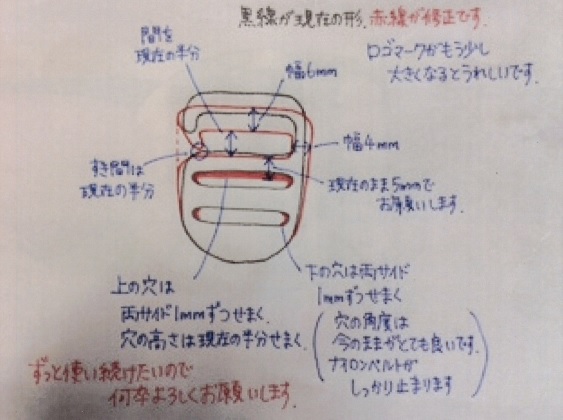 黒線が現在の形、赤線が修正です。
ロゴマークがもう少し
大きくなるとうれしいです。
間を
現在の半分
幅6mm
幅4mm
すき間は
現在の半分
現在のまま5mmで
お願いします。
上の穴は
両サイド1mmずつせまく
穴の高さは現在の半分せまく。
下の穴は両サイド
1mmずつせまく
穴の角度は
今のままがとても良いです。
ナイロンベルトが
しっかり止まります
ずっと使い続けたいので
何卒よろしくお願いします。